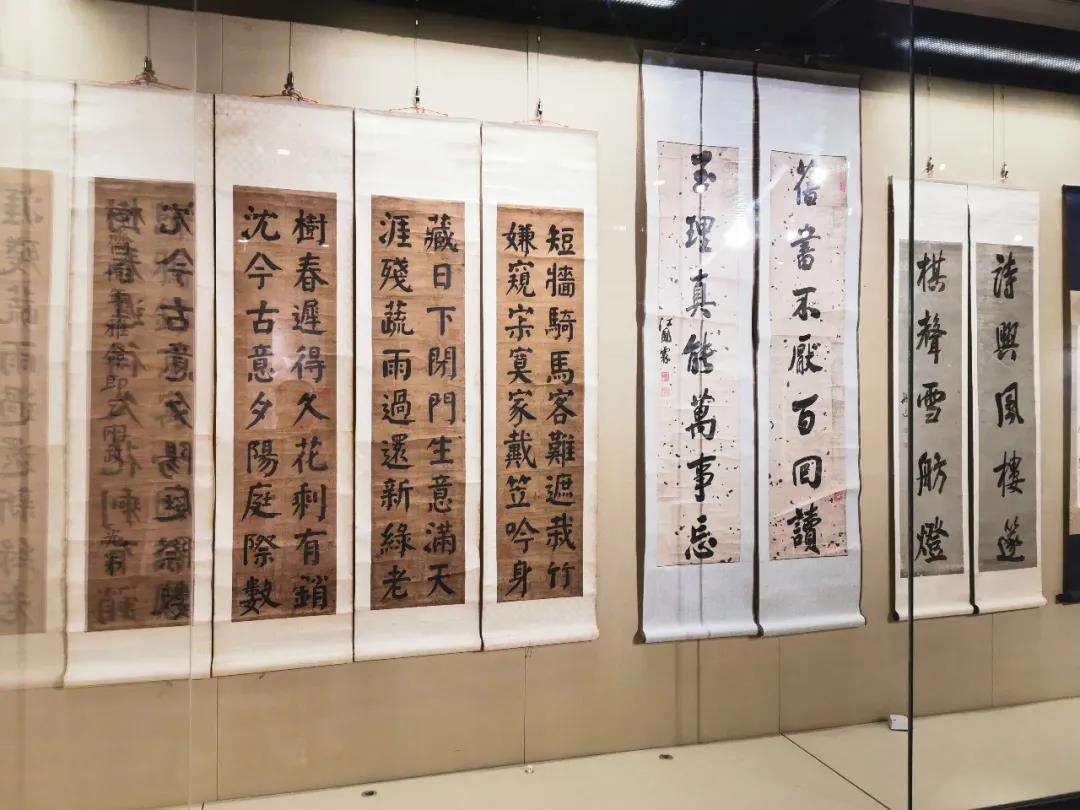 詩興風樓篴
棋聲雪舫燈
舊書不厭百回讀
至理真能萬事忘
江國霖
短牆騎馬客難遮栽竹
嫌窺寂寞家戴笠吟身
藏日下閉門生意滿天
涯殘蔬雨過還新綠老
樹春遲得久花剩有銷
沈今古意夕陽庭際數